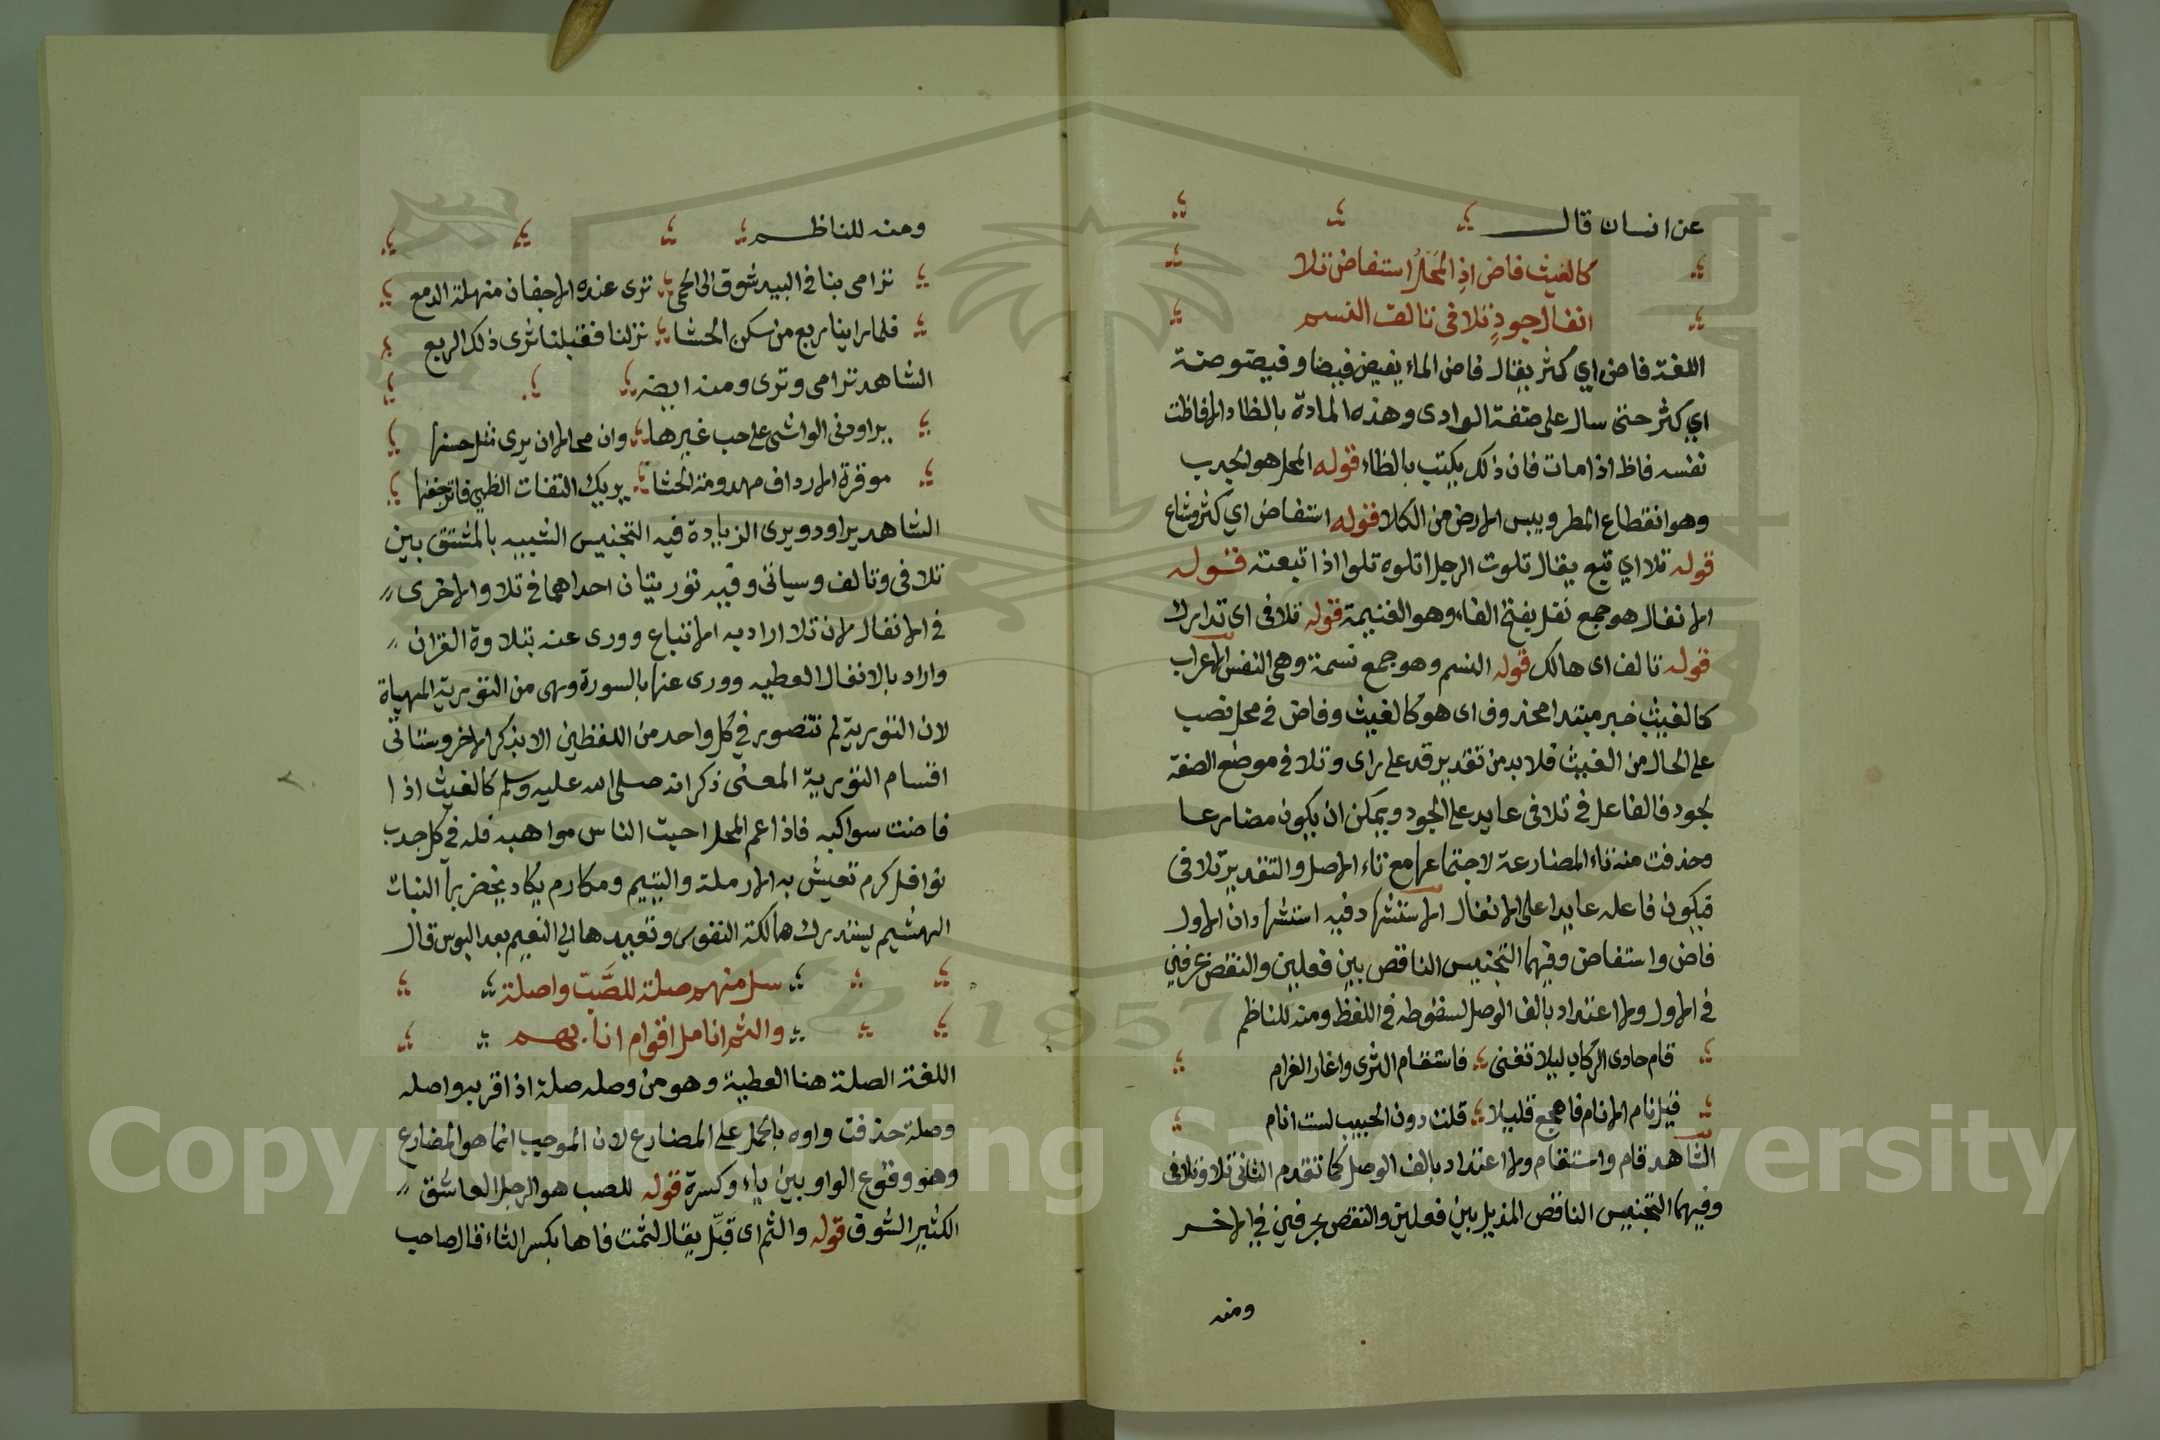 عن انسان قال
كالغيث فاض اذِ المَحَلُ استفاض تلا
انفال جودٍ تلافى تالف النسم
اللغة فاض اي كثر يقال فاض الماء يفيض فيضا وفيضوضة
اي كثر حتى سال على ضفة الوادى وهذه المادة بالظاد الافاظت
نفسه فاظ اذا مات فان ذلك يكتب بالظاء قوله المحل هو الجدب
وهو انقطاع المطر ويبس الارض من الكلا قوله استفاض اي كثر وشاع
قوله تلا اي تبع يقال تلوت الرجل اتلوه تلوا اذا تبعته قوله
الانفال هو جمع نفل بفتح الفاء وهو الغنيمة قوله تلافى اى تدارك
قوله تالف اى هالك قوله النسم وهو جمع نسمة وهى النفس الاعراب
كالغيث خبر مبتدا محذوف اى هو كالغيث وفاض في محل نصب
على الحال من الغيث فلا بد من تقدير قد على راى وتلا في موضع الصفة
لجود فالفاعل في تلافى عايد على الجود ويمكن ان يكون مضارعا
وحذفت منه تاء المضارعة لاجتماعها مع تاء الاصل والتقدير تلافى
فيكون فاعله عايدا على الانفال الاستشهاد فيه استشهادان الاول
فاض واستفاض وفيهما التجنيس الناقص بين فعلين والنقص حرفين
في الاول ولا اعتداد بالف الوصل لسقوطه في اللفظ ومنه للناظم
قام حادى الركاب ليلا تغنى فاستقام الثرى واغار الغرام
قيل نام الانام فاهجع قليلا قلت دون الحبيب لست انام
الشاهد قام واستقام ولا اعتداد بالف الوصل كما تقدم الثانى تلا وتلافى
وفيهما التجنيس الناقص المذيل بين فعلين والنقص بحرفين في الاخر
ومنه
ومنه للناظم
ترامى بنا في البيد شوق الى الحمى ترى عنده الاجفان منهلة الدمع
فلما راينا ربع من سكن الحشا نزلنا فقبلنا ثرى ذلك الربع
الشاهد ترامى وترى ومنه ايضه
يراودنى الواشى على حب غيرها وان محالا ان يرى مثل حسنها
موقرة الارداف مهدومة الحشا يريك التفات الظبي فاتر جفنها
الشاهد يراود ويرى الزيادة فيه التجنيس الشبيه بالمشتق بين
تلافى وتالف وسياتى وفيه توريتان احداهما في تلا والاخرى
في الانفال لان تلا اراد به الاتباع وورى عنه بتلاوة القران
واراد بالانفال العطيه وورى عنها بالسورة وهى من التورية المهياة
لان التورية لم تتصور في كل واحد من اللفظين الا بذكر الاخر وستاتى
اقسام التورية المعنى ذكر انه صلى الله عليه وسلم كالغيث اذا
فاضت سواكبه فاذا عم المحل احيت الناس مواهبه فله في كل جدب
نوافل كرم تعيش به الارملة واليتيم ومكارم يكاد يخضر بها النبات
الهشيم يستدرك هالكة النفوس وتعيدها الى النعيم بعد البوس قال
سل منهم صلة للصَّبّ واصلة
والثم انامل اقوام انا بهم
اللغة الصلة هنا العطية وهو من وصله صلة اذا قربه واصله
وصلة حذفت واوه بالحمل على المضارع لان الموجب انما هو المضارع
وهو وقوع الواو بين ياء وكسرة قوله للصب هو الرجل العاشق
الكثير الشوق قوله والثم اى قبّل يقال لثمت فاها بكسر الثاء قال صاحب
Copyright © King Saud University
1957